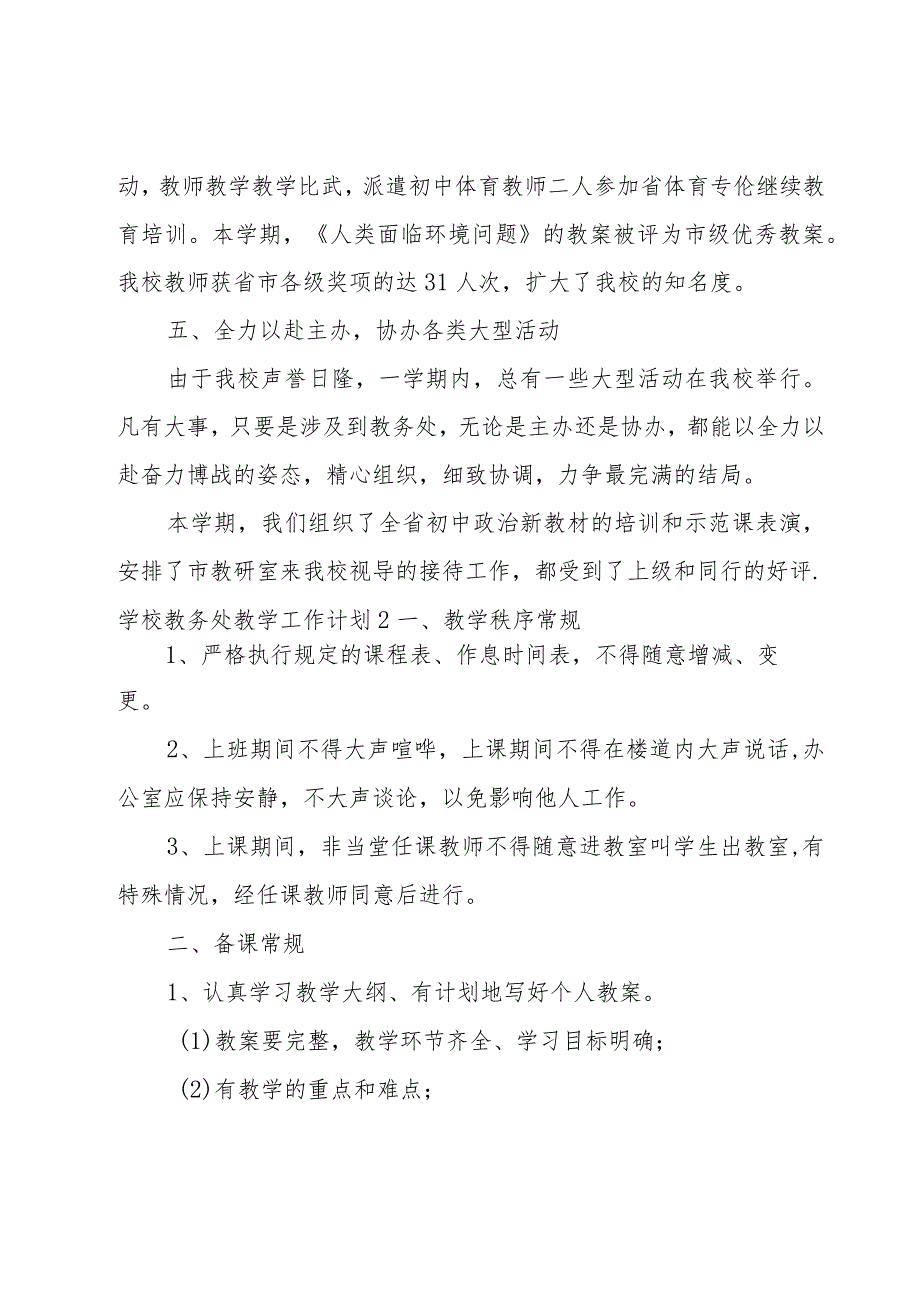 动，教师教学教学比武，派遣初中体育教师二人参加省体育专伦继续教
育培训。本学期，《人类面临环境问题》的教案被评为市级优秀教案。
我校教师获省市各级奖项的达31人次，扩大了我校的知名度。
五、全力以赴主办，协办各类大型活动
由于我校声誉日隆，一学期内，总有一些大型活动在我校举行。
凡有大事，只要是涉及到教务处，无论是主办还是协办，都能以全力以
赴奋力博战的姿态，精心组织，细致协调，力争最完满的结局。
本学期，我们组织了全省初中政治新教材的培训和示范课表演，
安排了市教研室来我校视导的接待工作，都受到了上级和同行的好评.
学校教务处教学工作计划2一、教学秩序常规
1、严格执行规定的课程表、作息时间表，不得随意增减、变
更。
2、上班期间不得大声喧哗，上课期间不得在楼道内大声说话,办
公室应保持安静，不大声谈论，以免影响他人工作。
3、上课期间，非当堂任课教师不得随意进教室叫学生出教室,有
特殊情况，经任课教师同意后进行。
二、备课常规
1、认真学习教学大纲、有计划地写好个人教案。
(1)教案要完整，教学环节齐全、学习目标明确；
(2)有教学的重点和难点；